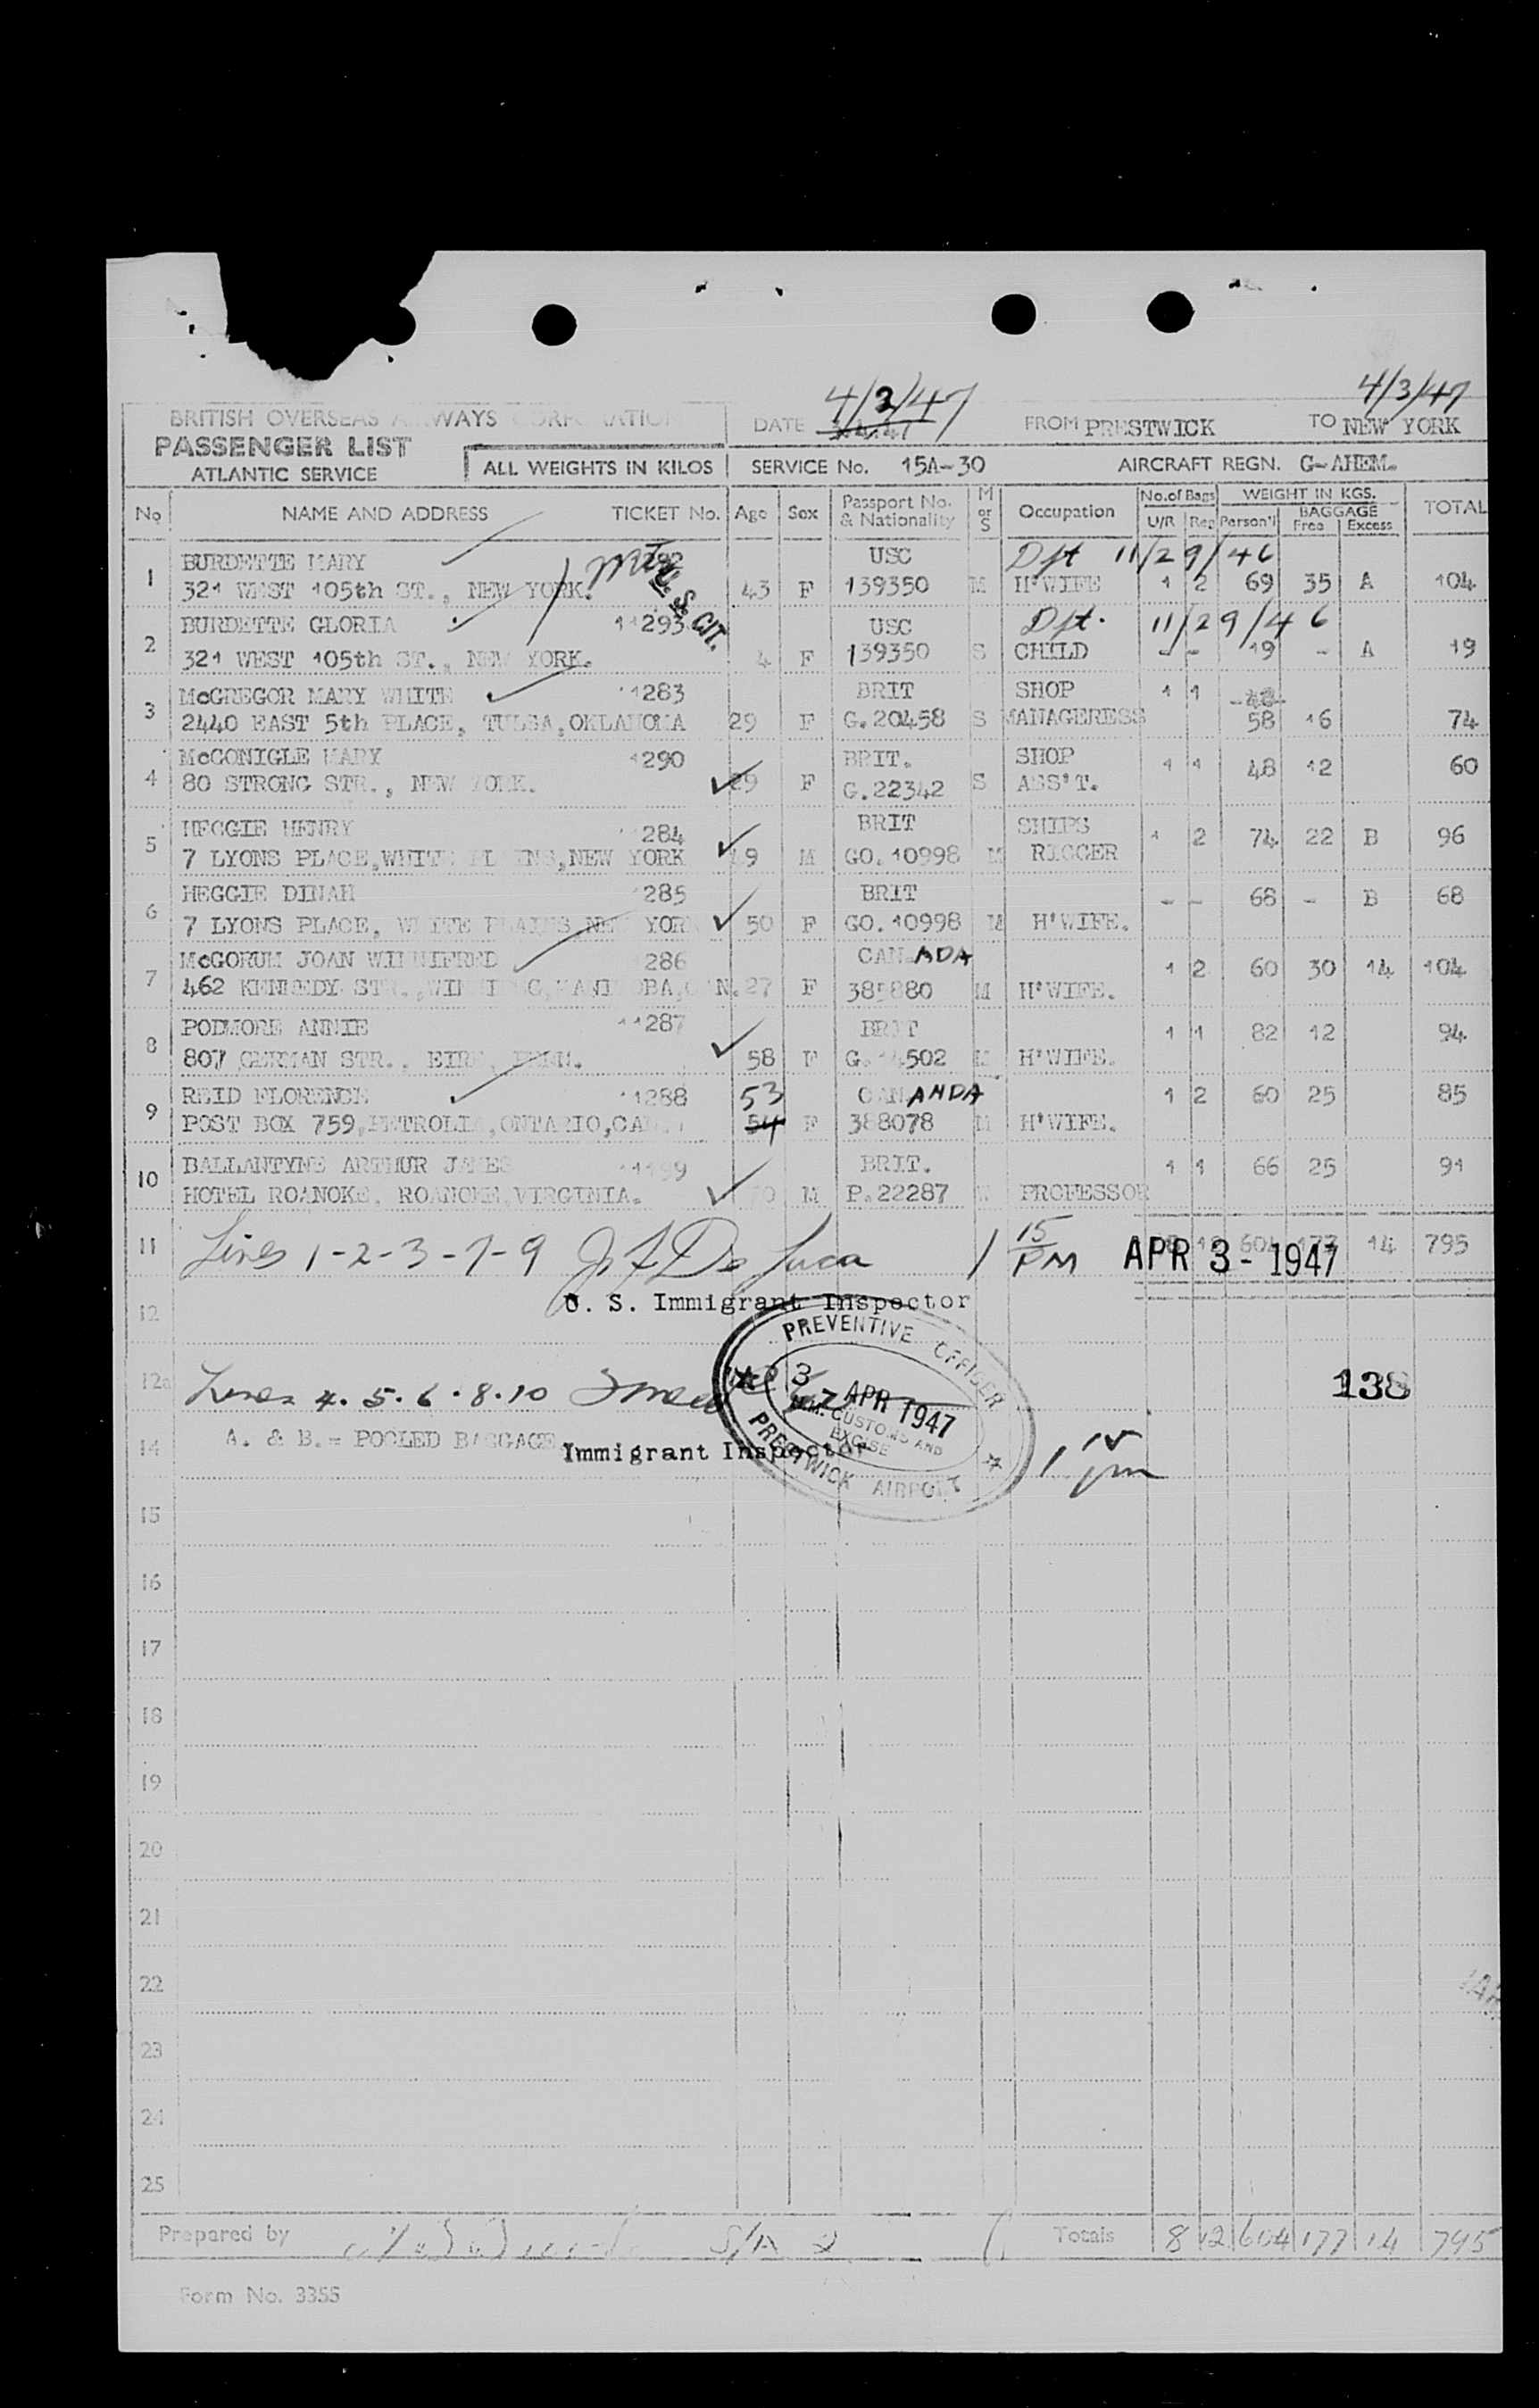 4/3/47
4/3/47
BRITISH OVERSEAS AIRWAYS CORPORATION DATE FROM PRESTWICK TO NEW YORK
PASSENGER LIST
ATLANTIC SERVICE ALL WEIGHTS IN KILOS SERVICE No. 15A-30 AIRCRAFT REGN. G-AHEM.
No NAME AND ADDRESS TICKET No. Age Sex Passport No. & Nationality M or S Occupation No. of Bags U/R Reg WEIGHT IN KGS. Person'l BAGGAGE Free Excess TOTAL
BURDETTE MARY USC Dft 11/29/46
1 321 WEST 105th ST., NEW YORK. 43 F 139350 M H'WIFE 1 2 69 35 A 104
U.S. CIT.
BURDETTE GLORIA 11293 USC Dft. 11/29/46
2 321 WEST 105th ST., NEW YORK. 4 F 139350 S CHILD - - 19 - A 19
McGREGOR MARY WHITE 11283 BRIT SHOP 1 1
3 2440 EAST 5th PLACE, TULSA, OKLAHOMA 29 F G.20458 S MANAGERESS 58 16 74
McCONIGLE MARY 1290 BRIT. SHOP
4 80 STRONG STR., NEW YORK. 29 F G.22342 S ASS'T. 1 1 48 12 60
HEGGIE HENRY 11284 BRIT SHIPS
5 7 LYONS PLACE, WHITE PLAINS, NEW YORK 9 M GO.10998 M RIGGER 1 2 74 22 B 96
HEGGIE DINAH 1285 BRIT
6 7 LYONS PLACE, WHITE PLAINS, NEW YORK 50 F GO.10998 M H'WIFE. - - 68 - B 68
McGORUM JOAN WINNIFRED 286 CANADA
7 462 KENNEDY STR., WINNIPEG, MANITOBA, CAN. 27 F 385880 M H'WIFE. 1 2 60 30 14 104
PODMORE ANNIE 11287 BRIT
8 807 GERMAN STR., EIRE, PENN. 58 F 502 M H'WIFE. 1 1 82 12 94
REID FLORENCE 11288 53 CANANDA
9 POST BOX 759, PETROLIA, ONTARIO, CAN. 54 F 388078 M H'WIFE. 1 2 60 25 85
BALLANTYNE ARTHUR JAMES 11199 BRIT.
10 HOTEL ROANOKE, ROANOKE, VIRGINIA. 70 M P.22287 PROFESSOR 1 1 66 25 91
11 Lines 1-2-3-7-9 J F De Luca 1 15 PM APR 3 - 1947 604 177 14 795
U. S. Immigrant Inspector
12
PREVENTIVE OFFICER
12a Lines 4.5.6.8.10 138
3 APR 1947
H.M. CUSTOMS AND EXCISE
14 A. & B. = POOLED BAGGAGE.
Immigrant Inspector
PRESTWICK AIRPORT
1 15 pm
15
16
17
18
19
20
21
22
23
24
25
Prepared by S/A 2 Totals 8 12 604 177 14 795
Form No. 3355